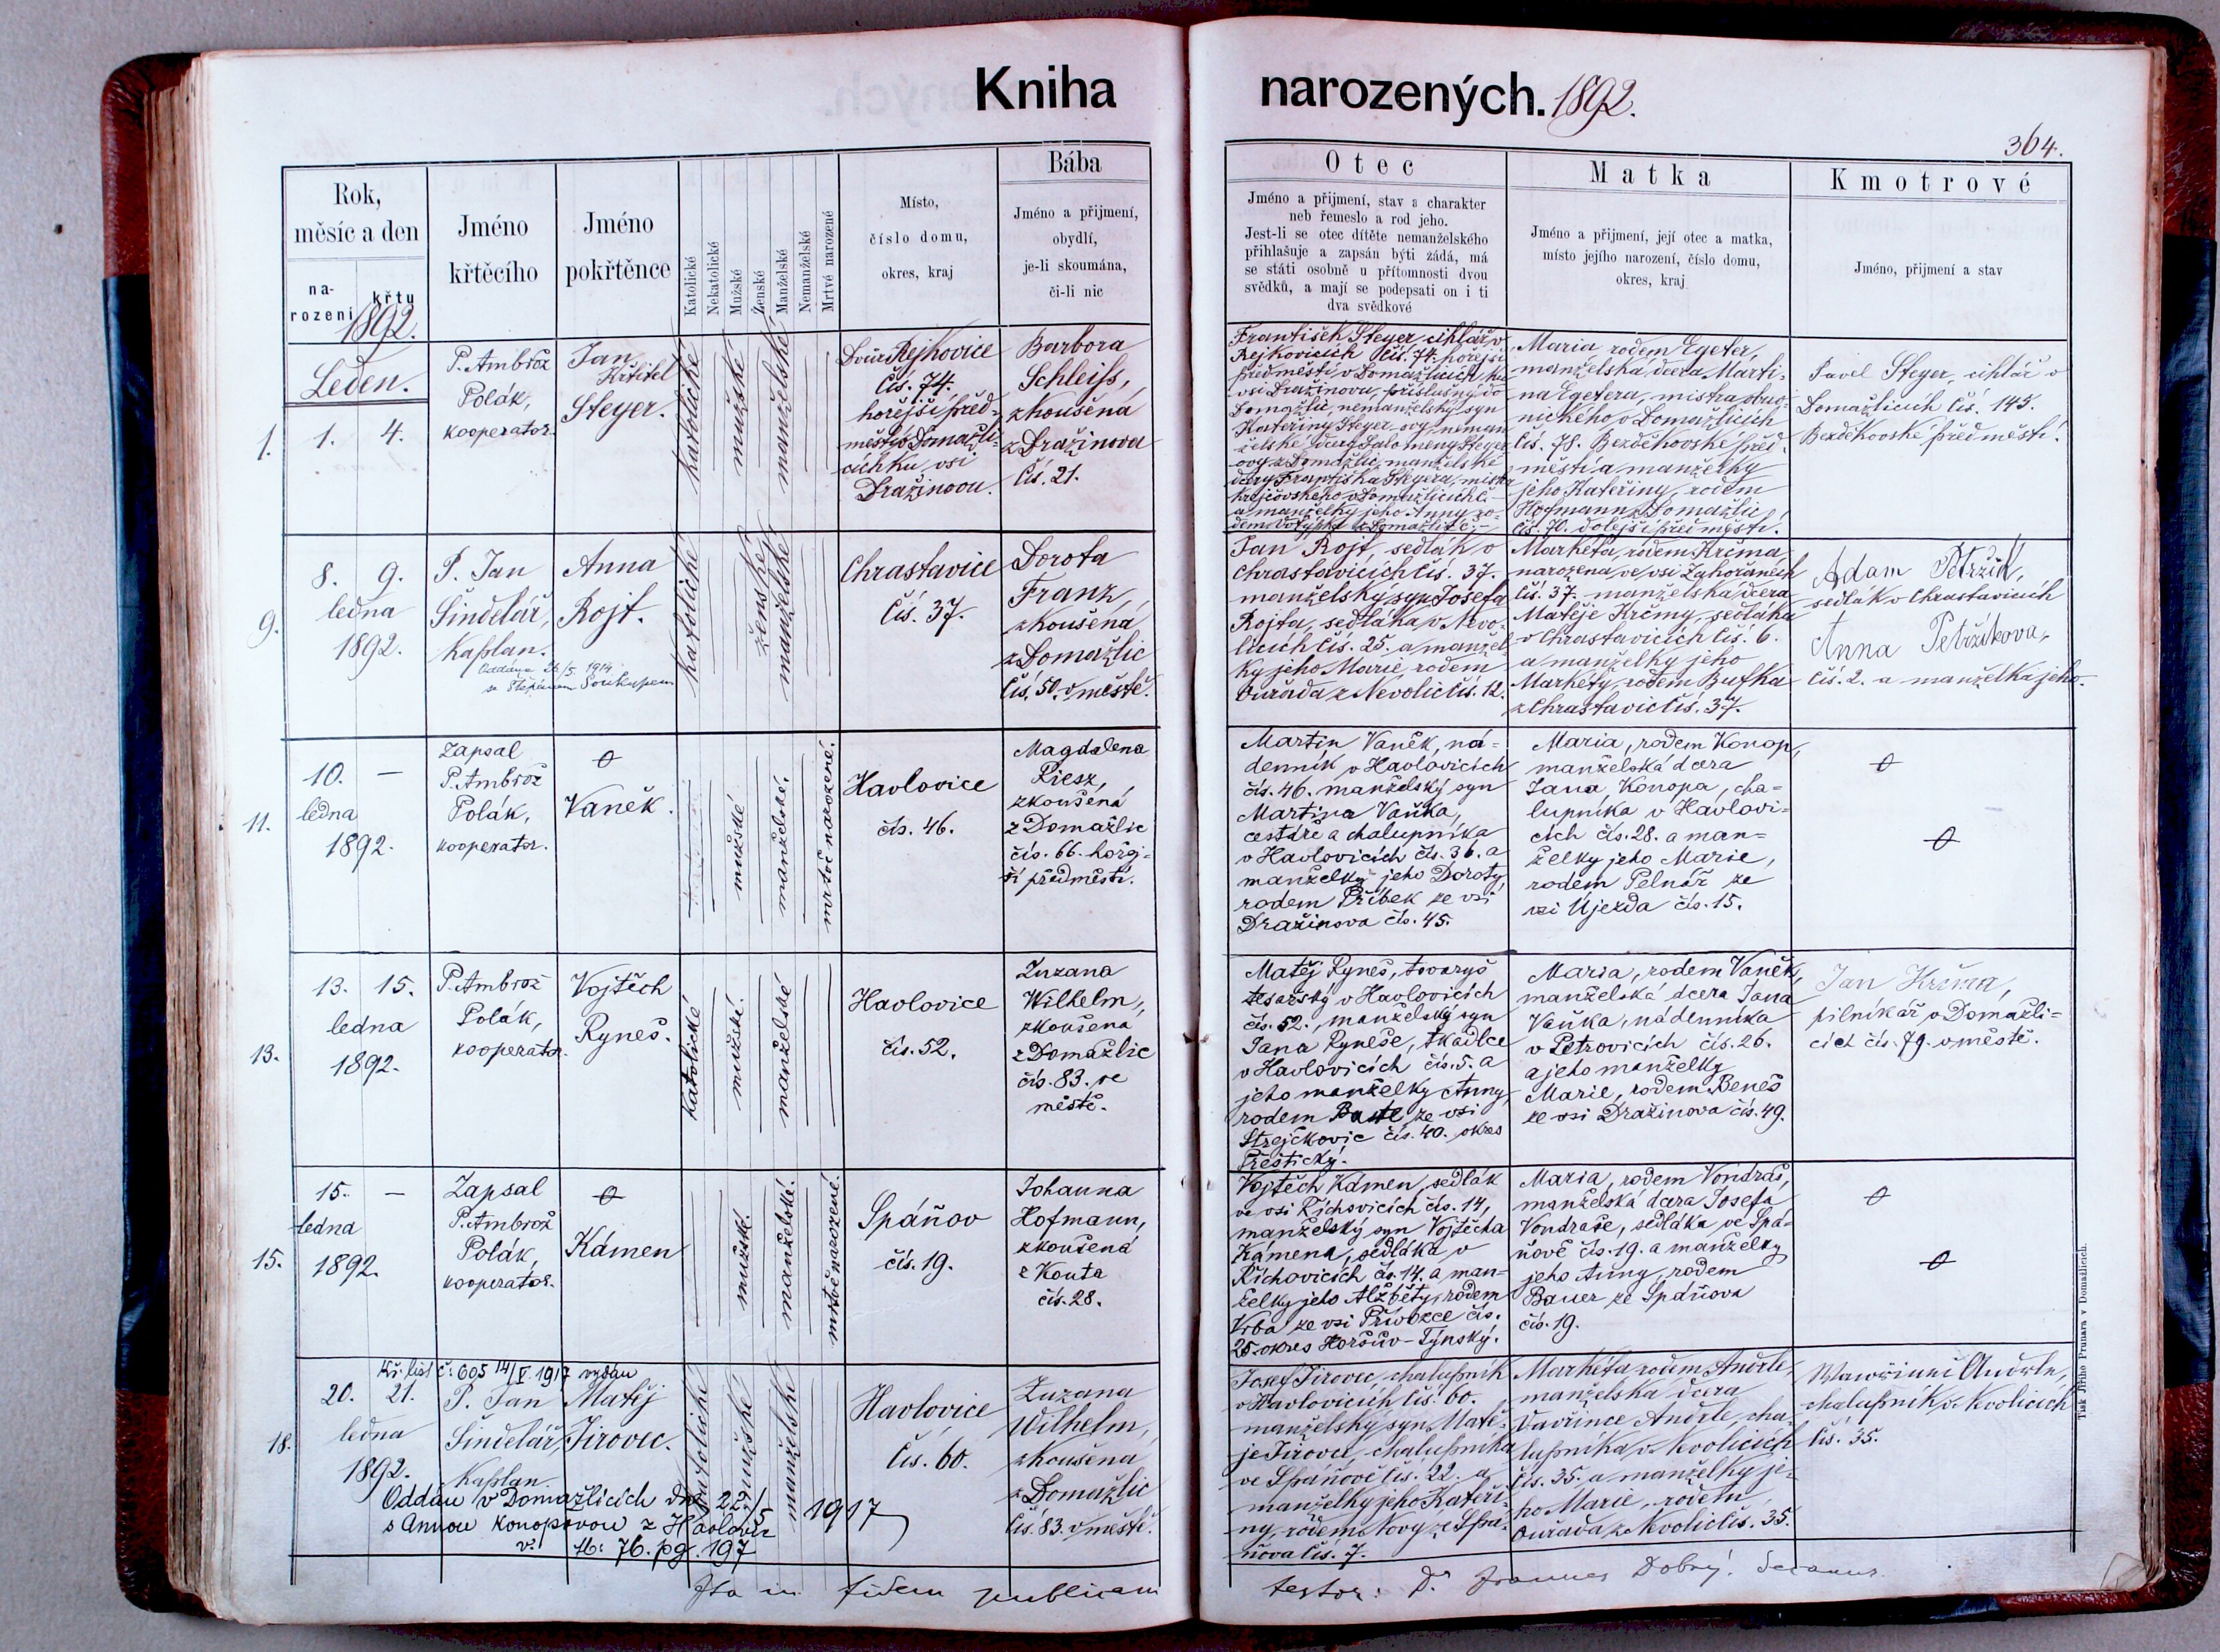 Kniha narozených. 1892.
364.
Rok,
měsíc a den
na-
rozeni
křtu
1892.
Jméno
křtěcího
Jméno
pokřtěnce
Katolické
Nekatolické
Mužské
Ženské
Manželské
Nemanželské
Mrtvé narozené
Místo,
číslo domu,
okres, kraj
Bába
Jméno a přijmení,
obydlí,
je-li skoumána,
či-li nic
Otec
Jméno a přijmení, stav a charakter
neb řemeslo a rod jeho.
Jest-li se otec dítěte nemanželského
přihlašuje a zapsán býti žádá, má
se státi osobně u přítomnosti dvou
svědků, a mají se podepsati on i ti
dva svědkové
Matka
Jméno a přijmení, její otec a matka,
místo jejího narození, číslo domu,
okres, kraj
Kmotrové
Jméno, přijmení a stav
Leden.
1.
1. 4.
P. Ambrož
Polák,
kooperator.
Jan
Křtitel
Steyer.
katolické
mužské
manželské
Dvůr Rejkovice
čís. 74.
hořejší před-
městí v Domažli-
cích ku vsi
Dražinovu.
Barbora
Schleiſs,
zkoušená
z Dražinova
čís. 21.
František Steyer, cihlář v
Rejkovicích čís. 74. hořejší
předměstí v Domažlicích ku
vsi Dražinovu, příslušný do
Domažlic, nemanželský syn
Kateřiny Steyer-ovy, neman-
želské dcery Salomeny Steyer-
ovy z Domažlic, manželské
dcery Františka Steyera, mistra
krejčovského v Domažlicích č. –
a manželky jeho Anny, ro-
dem Votýpka z Domažlic č. –
Maria rodem Egeter,
manželská dcera Marti-
na Egetera, mistra obuv-
nického v Domažlicích
čís. 78. Bezděkovské před-
městí a manželky
jeho Kateřiny, rodem
Hofmann z Domažlic
čís. 70. dolejší předměstí.
Pavel Steyer, cihlář v
Domažlicích čís. 145.
Bezděkovské předměstí.
9.
8. 9.
ledna
1892.
P. Jan
Šindelář,
kaplan.
Oddána 26/5 1914
se Štěpánem Soukupem
Anna
Rojt.
katolické
ženské
manželské
Chrastavice
čís. 37.
Dorota
Franz,
zkoušená
z Domažlic
čís. 50. v městě.
Jan Rojt, sedlák v
Chrastavicích čís. 37.
manželský syn Josefa
Rojta, sedláka v Nevo-
licích čís. 25. a manžel-
ky jeho Marie, rodem
Ouřada z Nevolic čís. 12.
Markéta, rodem Krčma,
narozena ve vsi Zahořanech
čís. 37. manželská dcera
Matěje Krčmy, sedláka
v Chrastavicích čís. 6.
a manželky jeho
Markéty, rodem Bufka
z Chrastavic čís. 37.
Adam Petržík,
sedlák v Chrastavicích
Anna Petržíkova,
čís. 2. a manželka jeho.
11.
10. –
ledna
1892.
Zapsal
P. Ambrož
Polák,
kooperator.
Vaněk.
mužské
manželské.
mrtvě narozené.
Havlovice
čís. 46.
Magdalena
Riesz,
zkoušená
z Domažlic
čís. 66. hořej-
ší předměstí.
Martin Vaněk, ná-
denník v Havlovicích
čís. 46. manželský syn
Martina Vaňka,
cestáře a chalupníka
v Havlovicích čís. 36. a
manželky jeho Doroty,
rodem Příbek ze vsi
Dražinova čís. 45.
Maria, rodem Konop,
manželská dcera
Jana Konopa, cha-
lupníka v Havlovi-
cích čís. 28. a man-
želky jeho Marie,
rodem Pelnář ze
vsi Újezda čís. 15.
13.
13. 15.
ledna
1892.
P. Ambrož
Polák,
kooperator.
Vojtěch
Ryneš.
katolické
mužské.
manželské
Havlovice
čís. 52.
Zuzana
Wilhelm,
zkoušena
z Domažlic
čís. 83. ve
městě.
Matěj Ryneš, tovaryš
tesařský v Havlovicích
čís. 52., manželský syn
Jana Ryneše, tkadlce
v Havlovicích čís. 5. a
jeho manželky Anny,
rodem ze vsi
Strejčkovic čís. 40. okres
Přeštický.
Maria, rodem Vaněk,
manželská dcera Jana
Vaňka, nádenníka
v Petrovicích čís. 26.
a jeho manželky
Marie, rodem Beneš
ze vsi Dražinova čís. 49.
Jan Krčma,
pilníkář v Domažli-
cích čís. 79. v městě.
15.
15. –
ledna
1892.
Zapsal
P. Ambrož
Polák,
kooperator.
Kámen
mužské.
manželské.
mrtvě narozené.
Spáňov
čís. 19.
Johanna
Hofmann,
zkoušená
z Kouta
čís. 28.
Vojtěch Kámen, sedlák
ve vsi Říchovicích čís. 14,
manželský syn Vojtěcha
Kámena, sedláka v
Říchovicích čís. 14. a man-
želky jeho Alžběty, rodem
Vrba ze vsi Přívozce čís.
25. okres Horšův-Týnský.
Maria, rodem Vondraš,
manželská dcera Josefa
Vondraše, sedláka ve Spá-
ňově čís. 19. a manželky
jeho Anny, rodem
Bauer ze Spáňova
čís. 19.
18.
Kř. list č: 605 14/V. 1917 vydán
20. 21.
ledna
1892.
P. Jan
Šindelář,
kaplan.
Matěj
Jirovec.
katolické
mužské
manželské
Havlovice
čís. 60.
Zuzana
Wilhelm,
zkoušená
z Domažlic
čís. 83. v městě.
Josef Jirovec, chalupník
v Havlovicích čís. 60.
manželský syn Matě-
je Jirovce, chalupníka
ve Spáňově čís. 22. a
manželky jeho Kateři-
ny, rodem Nový ze Spá-
ňova čís. 7.
Markéta, rodem Andrle,
manželská dcera
Vavřince Andrle, cha-
lupníka v Nevolicích
čís. 35. a manželky je-
ho Marie, rodem
Ouřada z Nevolic čís. 35.
Wawřinní Andrle,
chalupník v Nevolicích
čís. 35.
Oddán v Domažlicích dne 22/5 1917
s Annou Konopovou z Havlovic
v. tb: 76. pg. 197
Ita in fidem publicam
testor: Dr Joannes Dobrý. decanus.
Tisk Jiřího Prunara v Domažlicích.